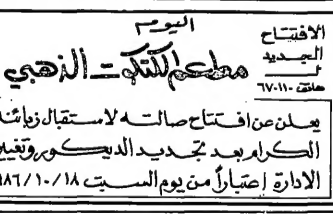 اليوم
الافتتاح
الجديد
لـ
هاتف ٦٧٠١١٠
مطعم الكتكوت الذهبي
يعلن عن افتتاح صالته لاستقبال زبائنه
الكرام بعد تجديد الديكور وتغيير
الادارة إعتباراً من يوم السبت ٩٨٦/١٠/١٨